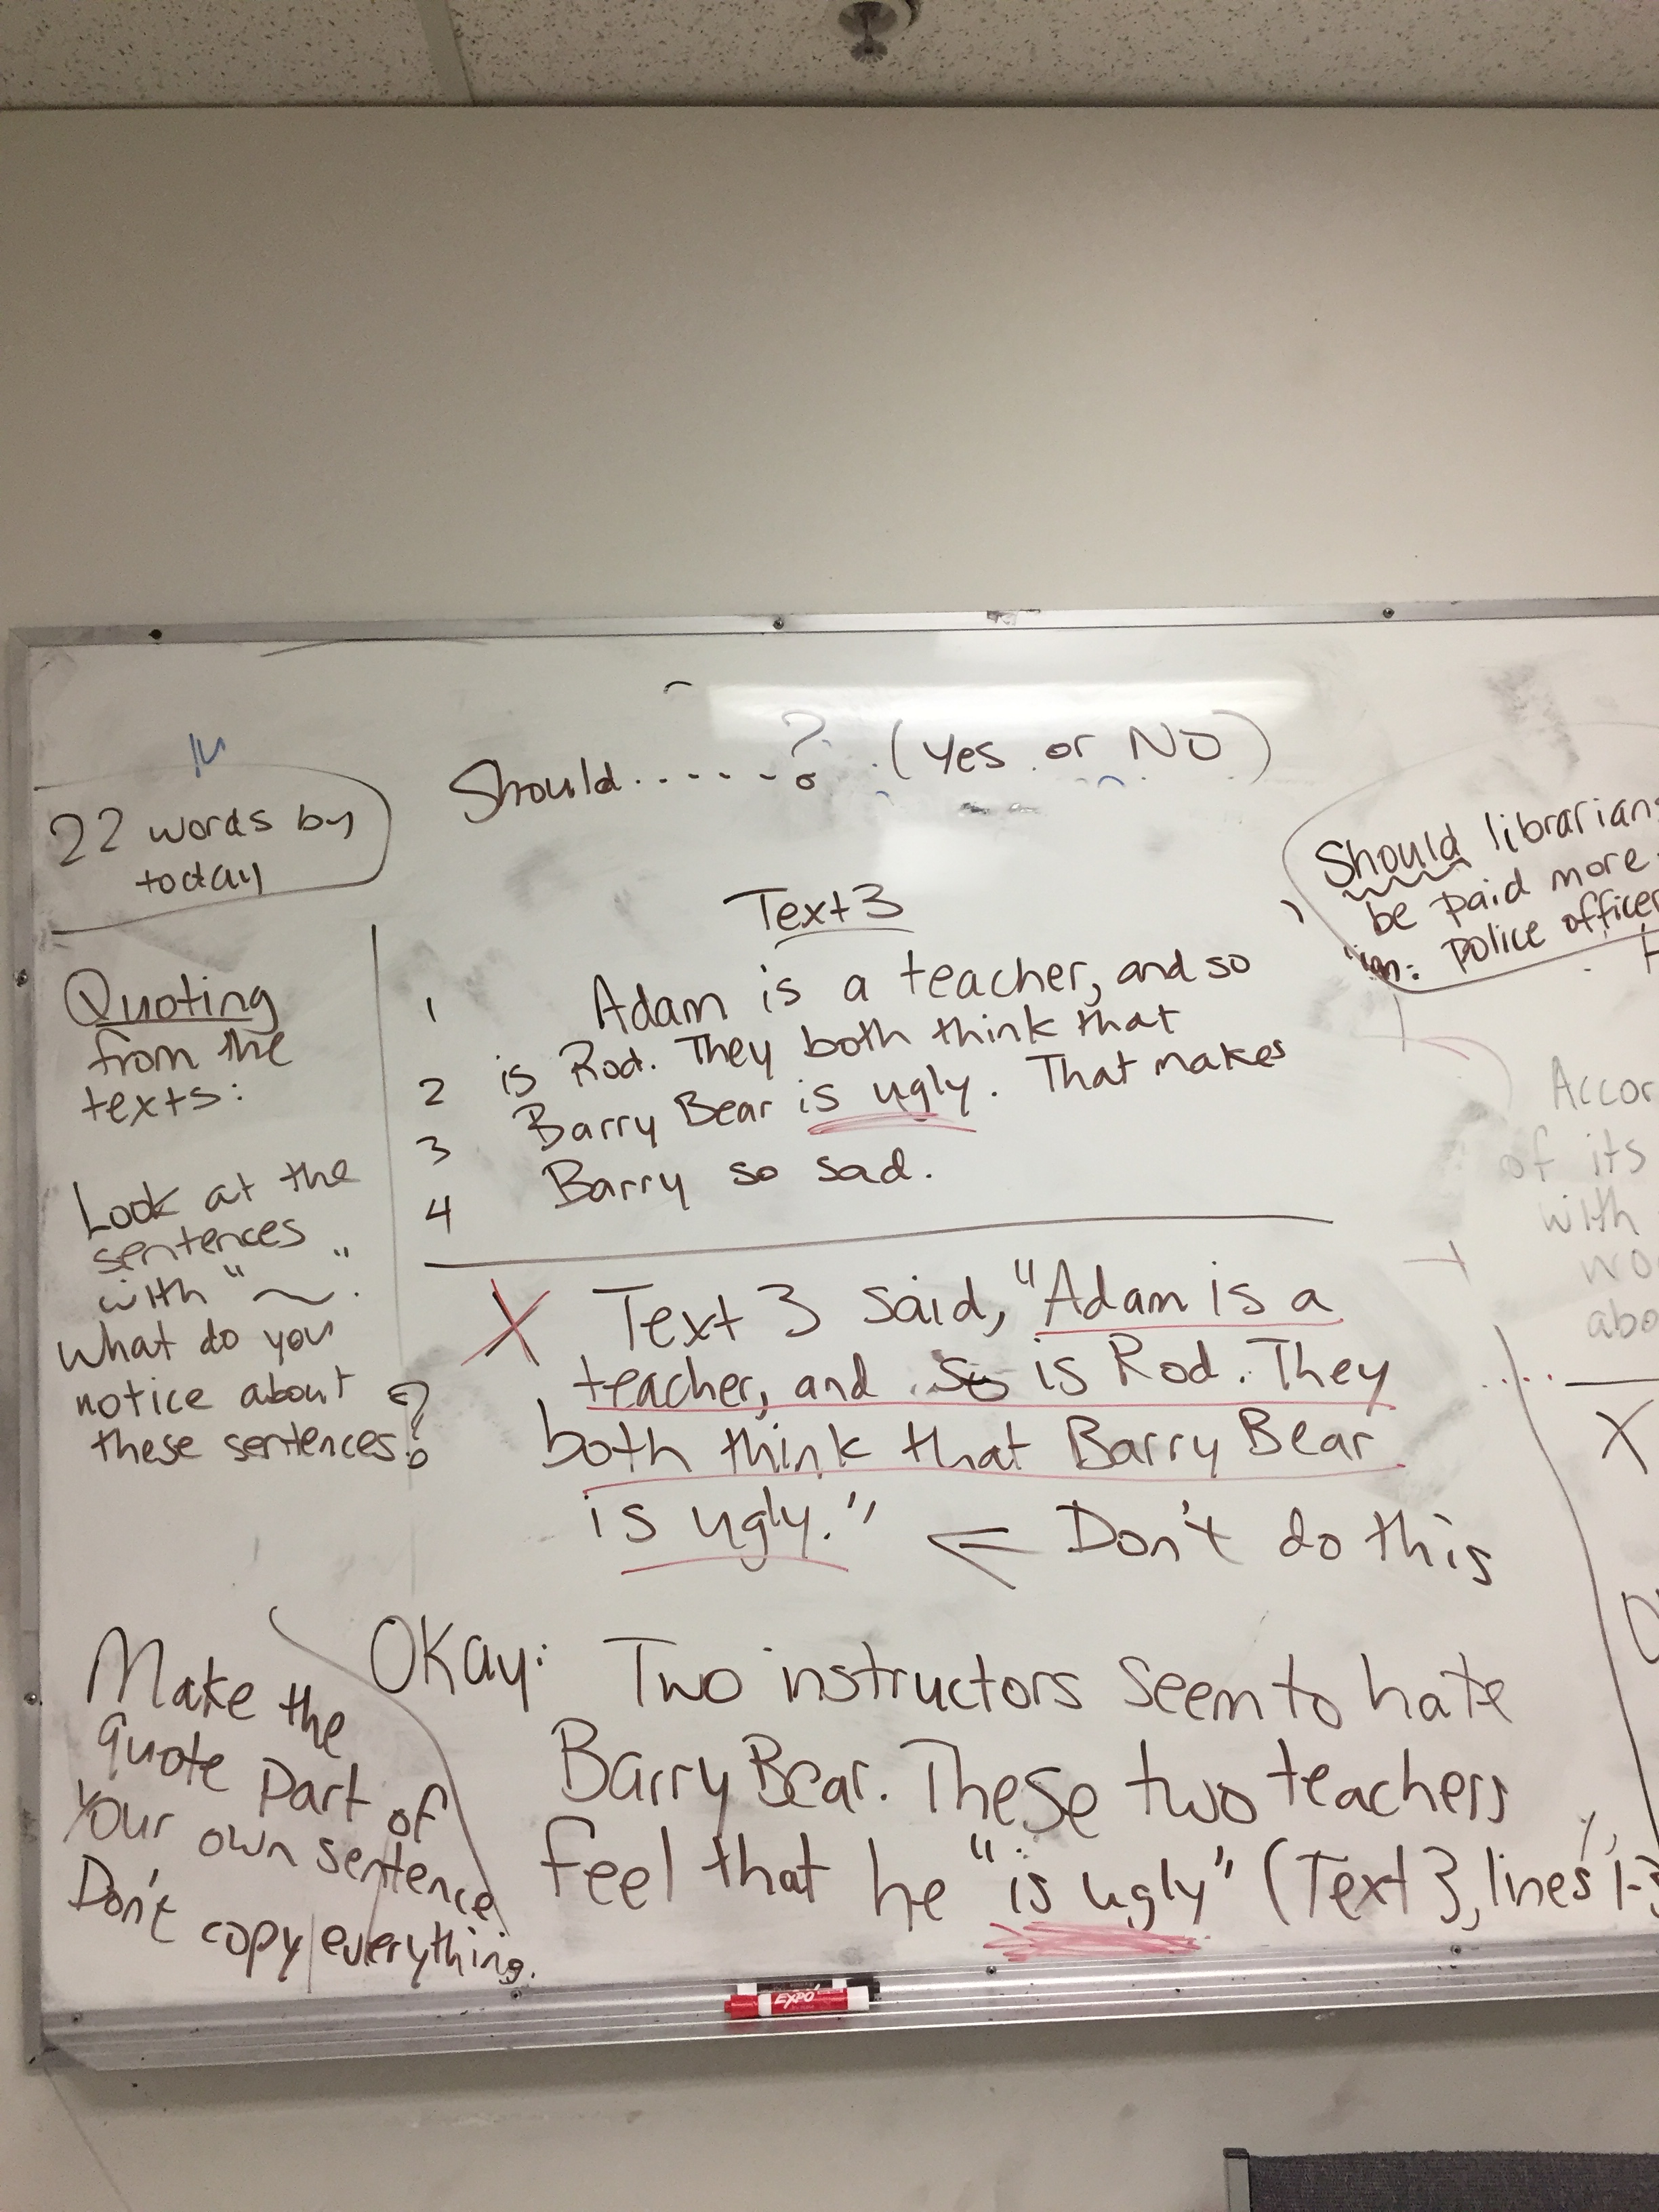 Should......? (Yes or NO)
22 words by
today
Should librarians
be paid more
police officer
Quoting
from the
texts:
Look at the
sentences
with "~".
What do you
notice about
these sentences?
Text 3
1 Adam is a teacher, and so
2 is Rod. They both think that
3 Barry Bear is ugly. That makes
4 Barry so sad.
X Text 3 said, "Adam is a
teacher, and so is Rod. They
both think that Barry Bear
is ugly." ← Don't do this
Okay: Two instructors seem to hate
Barry Bear. These two teachers
feel that he "is ugly" (Text 3, lines 1-3
Make the
quote part of
your own sentence
Don't copy everything.
of its
with
X
EXPO